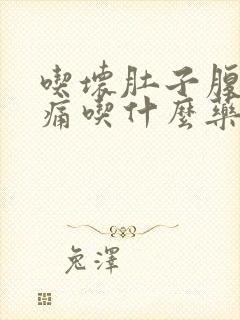 喫壞肚子腹
痛喫什麼藥
兔澤